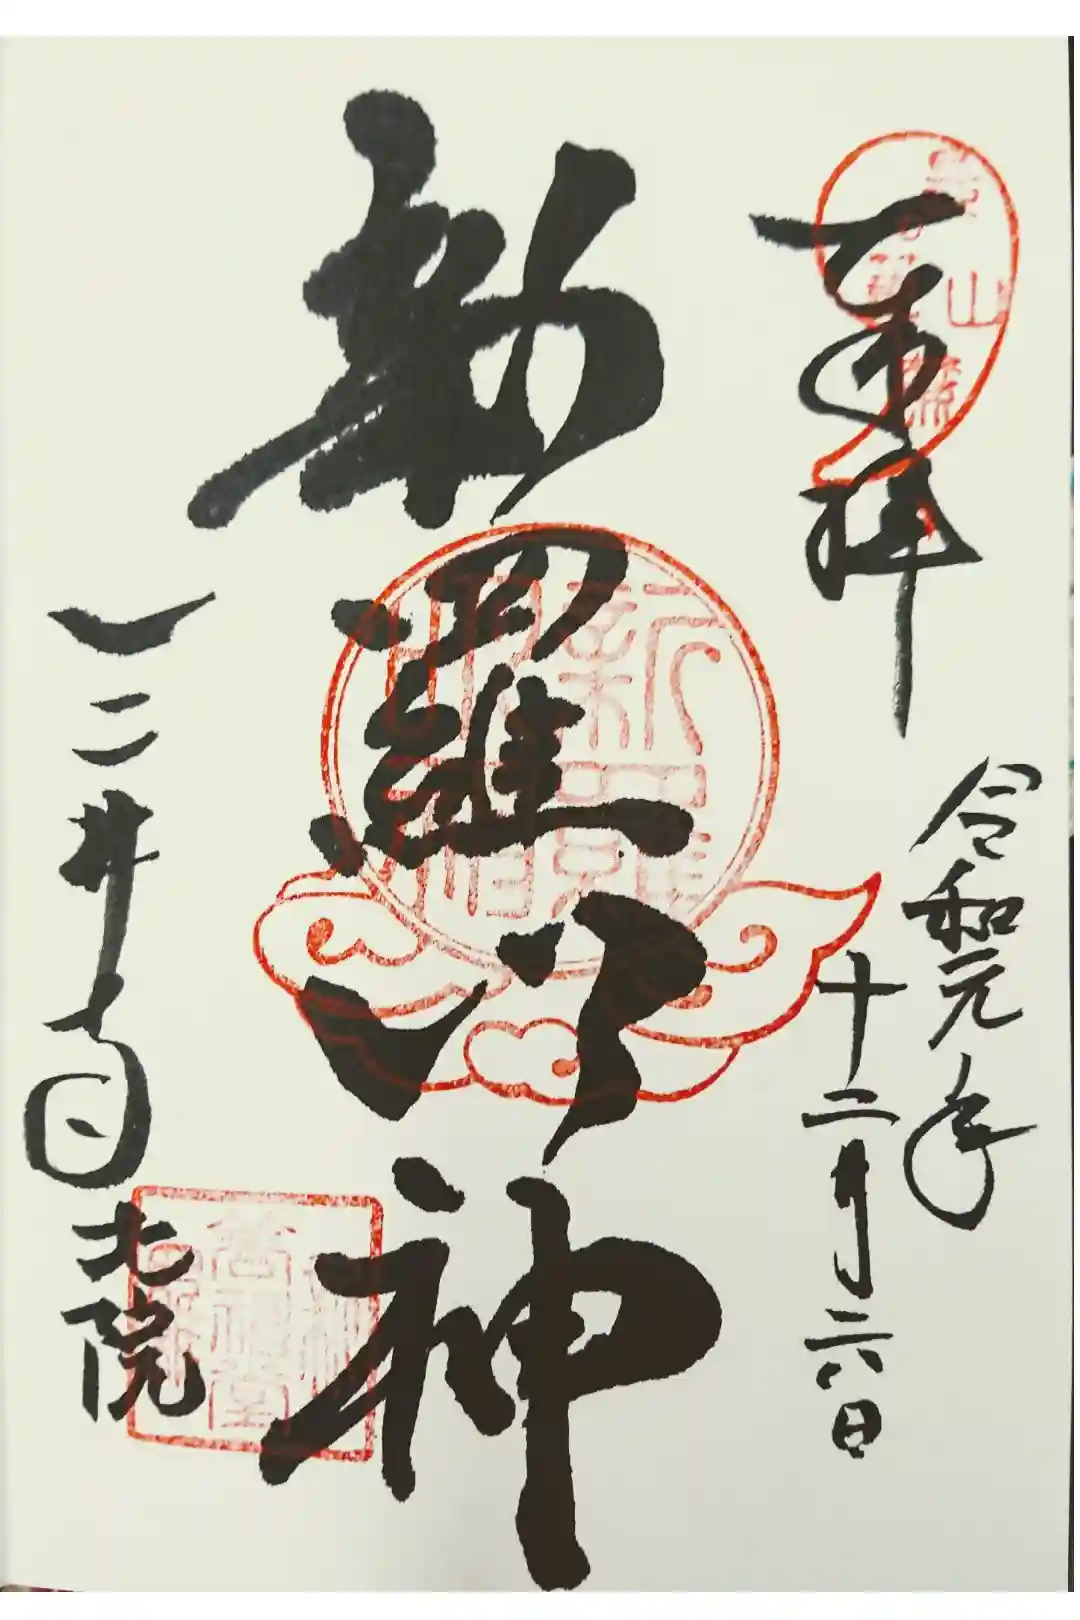 奉拝
令和元年
十二月六日
新羅明神
三井寺北院
新羅
明神